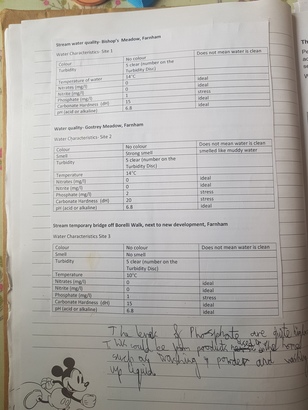 Stream water quality- Bishop's Meadow, Farnham
Water Characteristics: Site 1
Colour No colour Does not mean water is clean
Turbidity 5 clear (number on the
Turbidity Disc)
Temperature of water 14°C
Nitrates (mg/l) 0 ideal
Nitrite (mg/l) 0 ideal
Phosphate (mg/l) 1 stress
Carbonate Hardness (dH) 15 ideal
pH (acid or alkaline) 6.8 ideal
Water quality- Gostrey Meadow, Farnham
Water Characteristics: Site 2
Colour No colour Does not mean water is clean
Smell Strong smell smelled like muddy water
Turbidity 5 clear (number on the
Turbidity Disc)
Temperature 14°C
Nitrates (mg/l) 0 ideal
Nitrite (mg/l) 0 ideal
Phosphate (mg/l) 2 stress
Carbonate Hardness (dH) 20 stress
pH (acid or alkaline) 6.8 ideal
Stream temporary bridge off Borelli Walk, next to new development, Farnham
Water Characteristics Site 3
Colour No colour Does not mean water is clean
Smell No smell
Turbidity 5 clear (number on the
Turbidity Disc)
Temperature 10°C
Nitrates (mg/l) 0 ideal
Nitrite (mg/l) 0 ideal
Phosphate (mg/l) 1 stress
Carbonate Hardness (dH) 15 ideal
pH (acid or alkaline) 6.8 ideal
The levels of Phosphate are quite
This could be from products used in the home
such as washing powder and washing
up liquid.